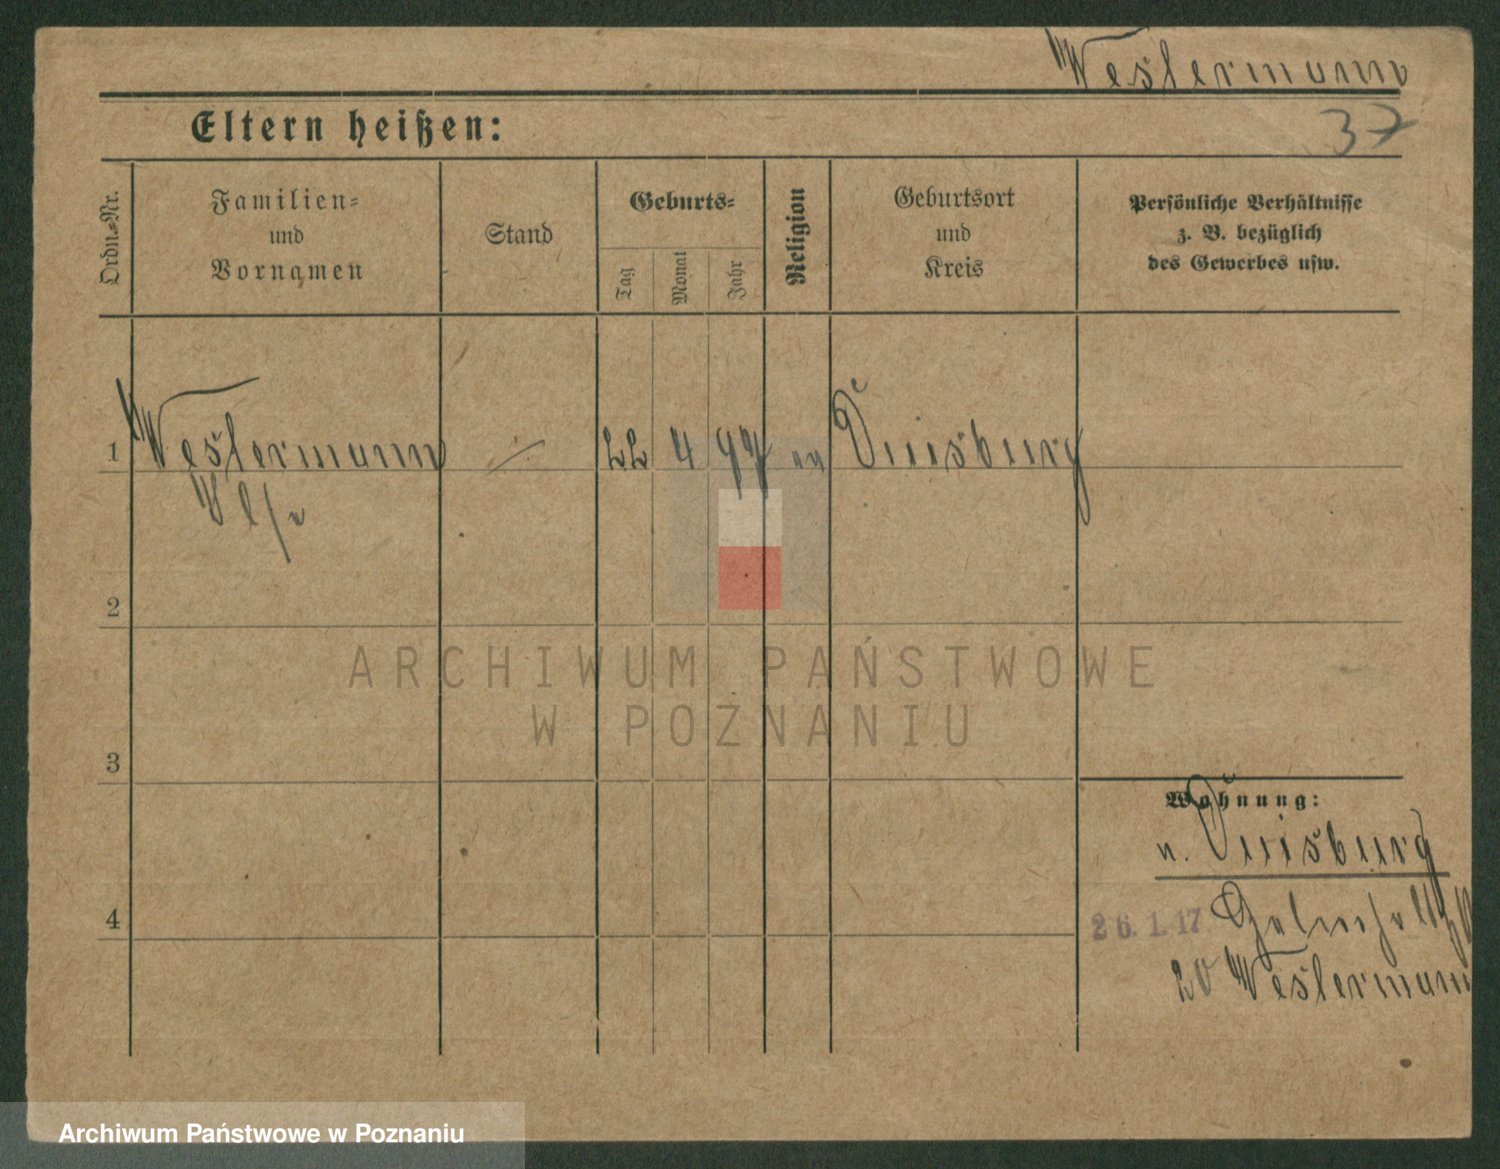 Westermann
Eltern heißen:
37
Ordn.=Nr.
Familien=
und
Vornamen
Stand
Geburts=
Tag
Monat
Jahr
Religion
Geburtsort
und
Kreis
Persönliche Verhältnisse
z. B. bezüglich
des Gewerbes usw.
1
Westermann
22 4 97
ev
Duisburg
2
ARCHIWUM PAŃSTWOWE
W POZNANIU
3
Wohnung:
n. Duisburg
4
26. 1. 17
20 Westermann
Archiwum Państwowe w Poznaniu